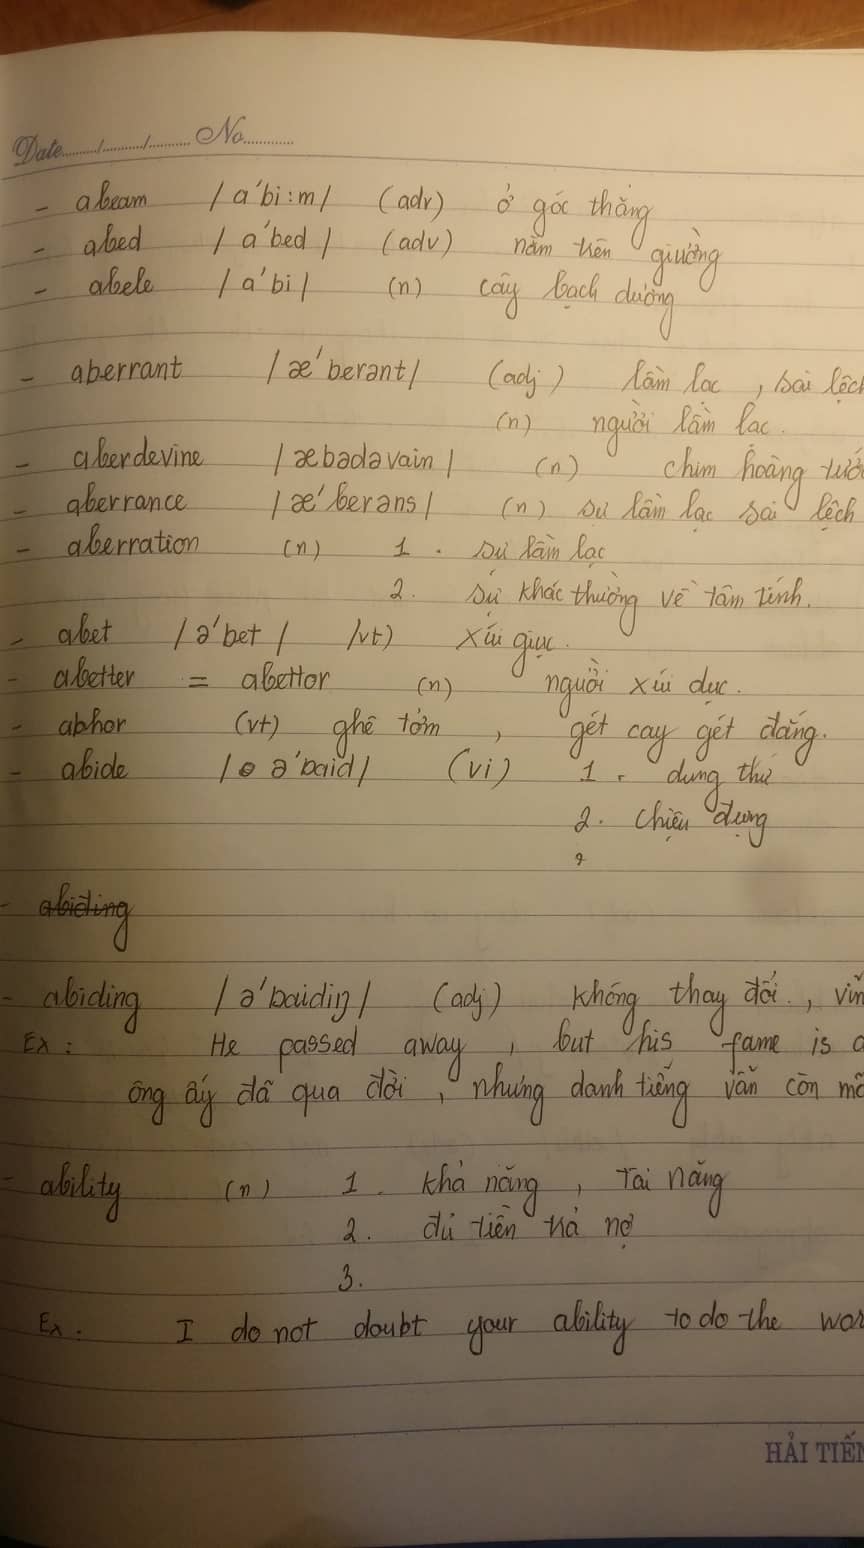 Date......../......../........ No............
- abeam /a'bi:m/ (adv) ở góc thẳng
- abed /a'bed/ (adv) nằm trên giường
- abele /a'bi/ (n) cây bạch dương
- aberrant /æ'berənt/ (adj) lầm lạc, sai lệch
(n) người lầm lạc.
- aberdevine /æbədəvain/ (n) chim hoàng tước
- aberrance /æ'berəns/ (n) sự lầm lạc sai lệch
- aberration (n) 1. sự lầm lạc
2. sự khác thường về tâm tính.
- abet /ə'bet/ /vt) xúi giục.
- abetter = abettor (n) người xúi dục.
- abhor (vt) ghê tởm, gét cay gét đắng.
- abide /ə'baid/ (vi) 1. dung thứ
2. chịu đựng
- abiding
- abiding /ə'baidiŋ/ (adj) không thay đổi.,
Ex: He passed away, but his fame is
ông ấy đã qua đời, nhưng danh tiếng vẫn còn
- ability (n) 1. khả năng, Tài năng
2. đủ tiền trả nợ
3.
Ex. I do not doubt your ability to do the
HẢI TIẾN